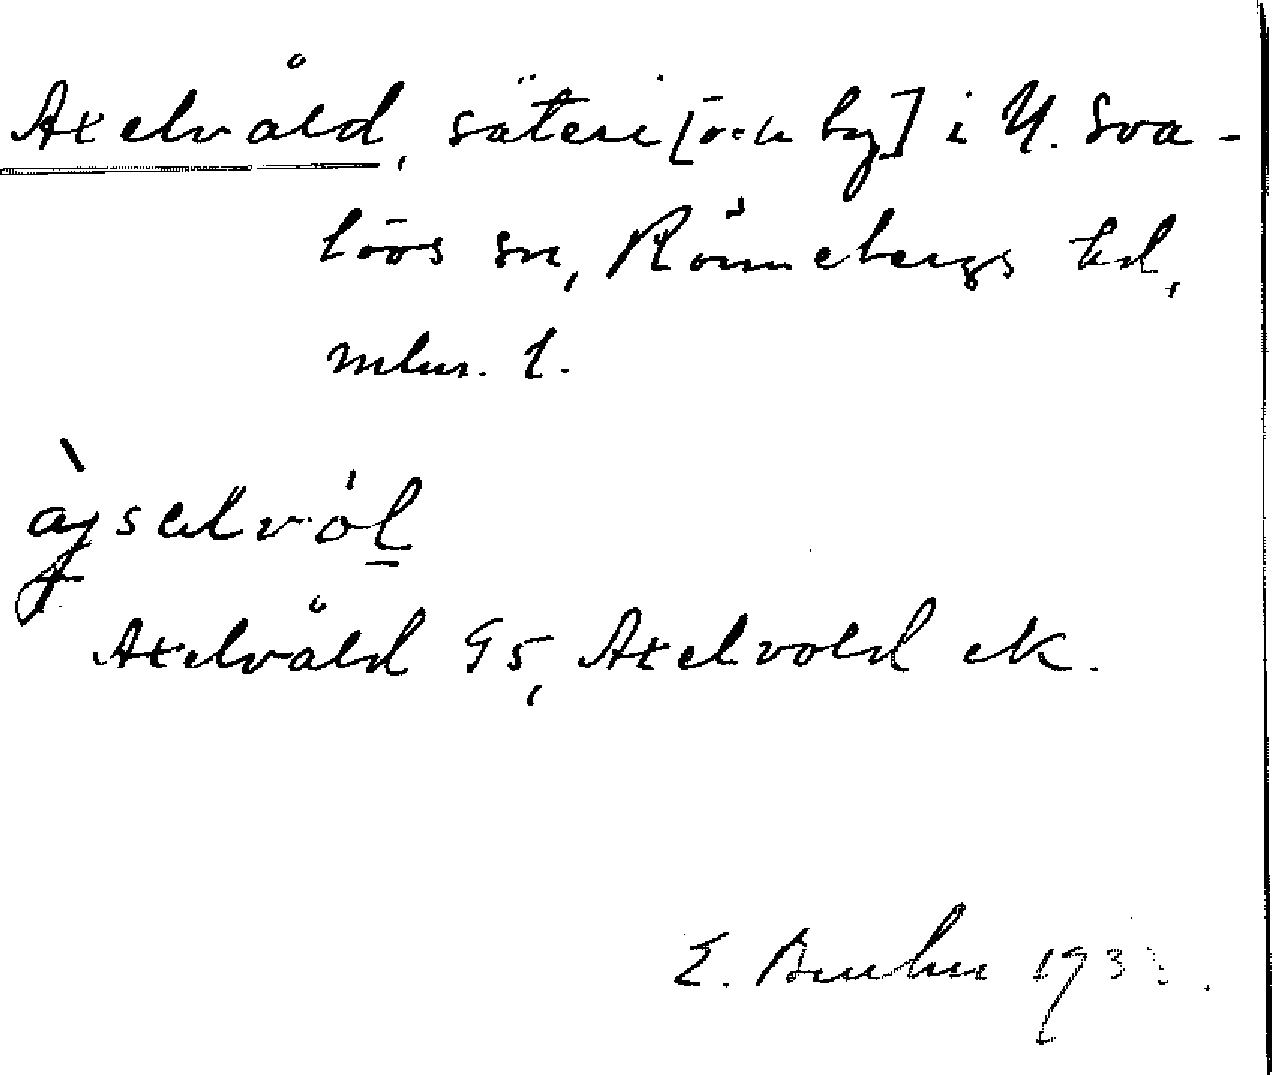 Axelvåld, säteri [och by] i N. Sva-
lövs sn, Rönnebergs hd,
mlm. l.
Axelvåld GS, Axelvold ek.
E. Bruhn 193